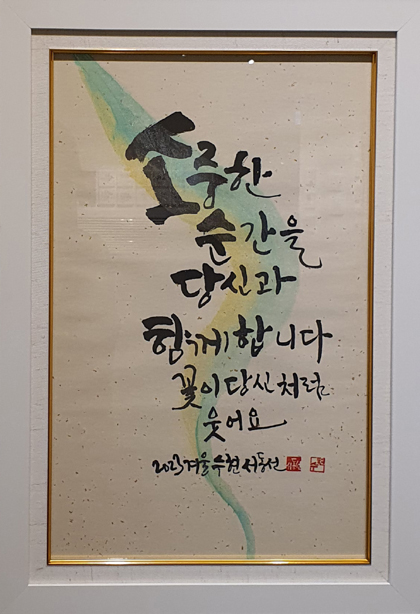 소중한
순간을
당신과
함께합니다
꽃이당신처럼
웃어요
2023겨울수현서동선